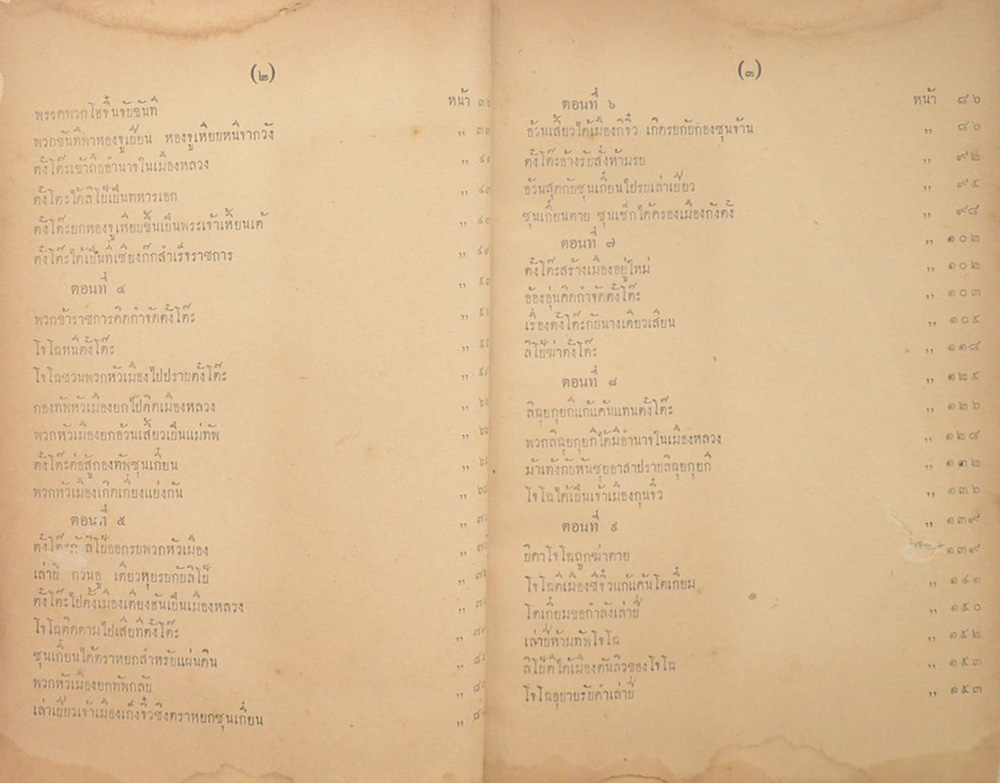 (๒)
หน้า
พรรคพวกโฮจิ๋นจับขันที
พวกขันทีพาหองจูเปียน หองจูเหียบหนีจากวัง
ตั๋งโต๊ะเข้าถืออำนาจในเมืองหลวง
ตั๋งโต๊ะได้ลิโป้เป็นทหารเอก
ตั๋งโต๊ะยกหองจูเหียบขึ้นเป็นพระเจ้าเหี้ยนเต้
ตั๋งโต๊ะได้เป็นที่เซียงก๊กสำเร็จราชการ
ตอนที่ ๔
พวกข้าราชการคิดกำจัดตั๋งโต๊ะ
โจโฉหนีตั๋งโต๊ะ
โจโฉชวนพวกหัวเมืองไปปราบตั๋งโต๊ะ
กองทัพหัวเมืองยกไปตีดเมืองหลวง
พวกหัวเมืองยกอ้วนเสี้ยวเป็นแม่ทัพ
ตั๋งโต๊ะต่อสู้กองทัพซุนเกี๋ยน
พวกหัวเมืองเกิดเกี่ยงแย่งกัน
ตอนที่ ๕
ตั๋งโต๊ะกับลิโป้ออกรบพวกหัวเมือง
เล่าปี่ กวนอู เตียวหุยรบกับลิโป้
ตั๋งโต๊ะไปตั้งเมืองเตียงฮันเป็นเมืองหลวง
โจโฉติดตามไปเสียทีตั๋งโต๊ะ
ซุนเกี๋ยนได้ตราหยกสำหรับแผ่นดิน
พวกหัวเมืองยกทัพกลับ
เล่าเปียวเจ้าเมืองเก็งจิ๋วชิงตราหยกซุนเกี๋ยน
(๓)
ตอนที่ ๖ หน้า ๘๖
อ้วนเสี้ยวได้เมืองกิจิ๋ว เกิดรบกับกองซุนจ้าน ,, ๘๖
ตั๋งโต๊ะอ้างรับสั่งห้ามรบ ,, ๙๒
อ้วนสุดกับซุนเกี๋ยนไปรบเล่าเปียว ,, ๙๕
ซุนเกี๋ยนตาย ซุนเซ็กได้ครองเมืองกังตั๋ง ,, ๙๘
ตอนที่ ๗ ,, ๑๐๒
ตั๋งโต๊ะสร้างเมืองอยู่ใหม่ ,, ๑๐๒
อ้องอุ้นคิดกำจัดตั๋งโต๊ะ ,, ๑๐๓
เรื่องตั๋งโต๊ะกับนางเตียวเสียน ,, ๑๐๕
ลิโป้ฆ่าตั๋งโต๊ะ ,, ๑๑๘
ตอนที่ ๘ ,, ๑๒๕
ลิฉุยกุยกีแก้แค้นแทนตั๋งโต๊ะ ,, ๑๒๖
พวกลิฉุยกุยกีได้มีอำนาจในเมืองหลวง ,, ๑๒๘
ม้าเท้งกับหันซุยอาสาปราบลิฉุยกุยกี ,, ๑๓๒
โจโฉได้เป็นเจ้าเมืองกุนจิ๋ว ,, ๑๓๖
ตอนที่ ๙ ,, ๑๓๙
บิดาโจโฉถูกฆ่าตาย ,, ๑๓๙
โจโฉตีเมืองชีจิ๋วแก้แค้นโตเกี๋ยม ,, ๑๔๑
โตเกี๋ยมขอกำลังเล่าปี่ ,, ๑๕๐
เล่าปี่ห้ามทัพโจโฉ ,, ๑๕๒
ลิโป้ตีได้เมืองกุนจิ๋วของโจโฉ ,, ๑๕๓
โจโฉอุบายรับคำเล่าปี่ ,, ๑๕๓